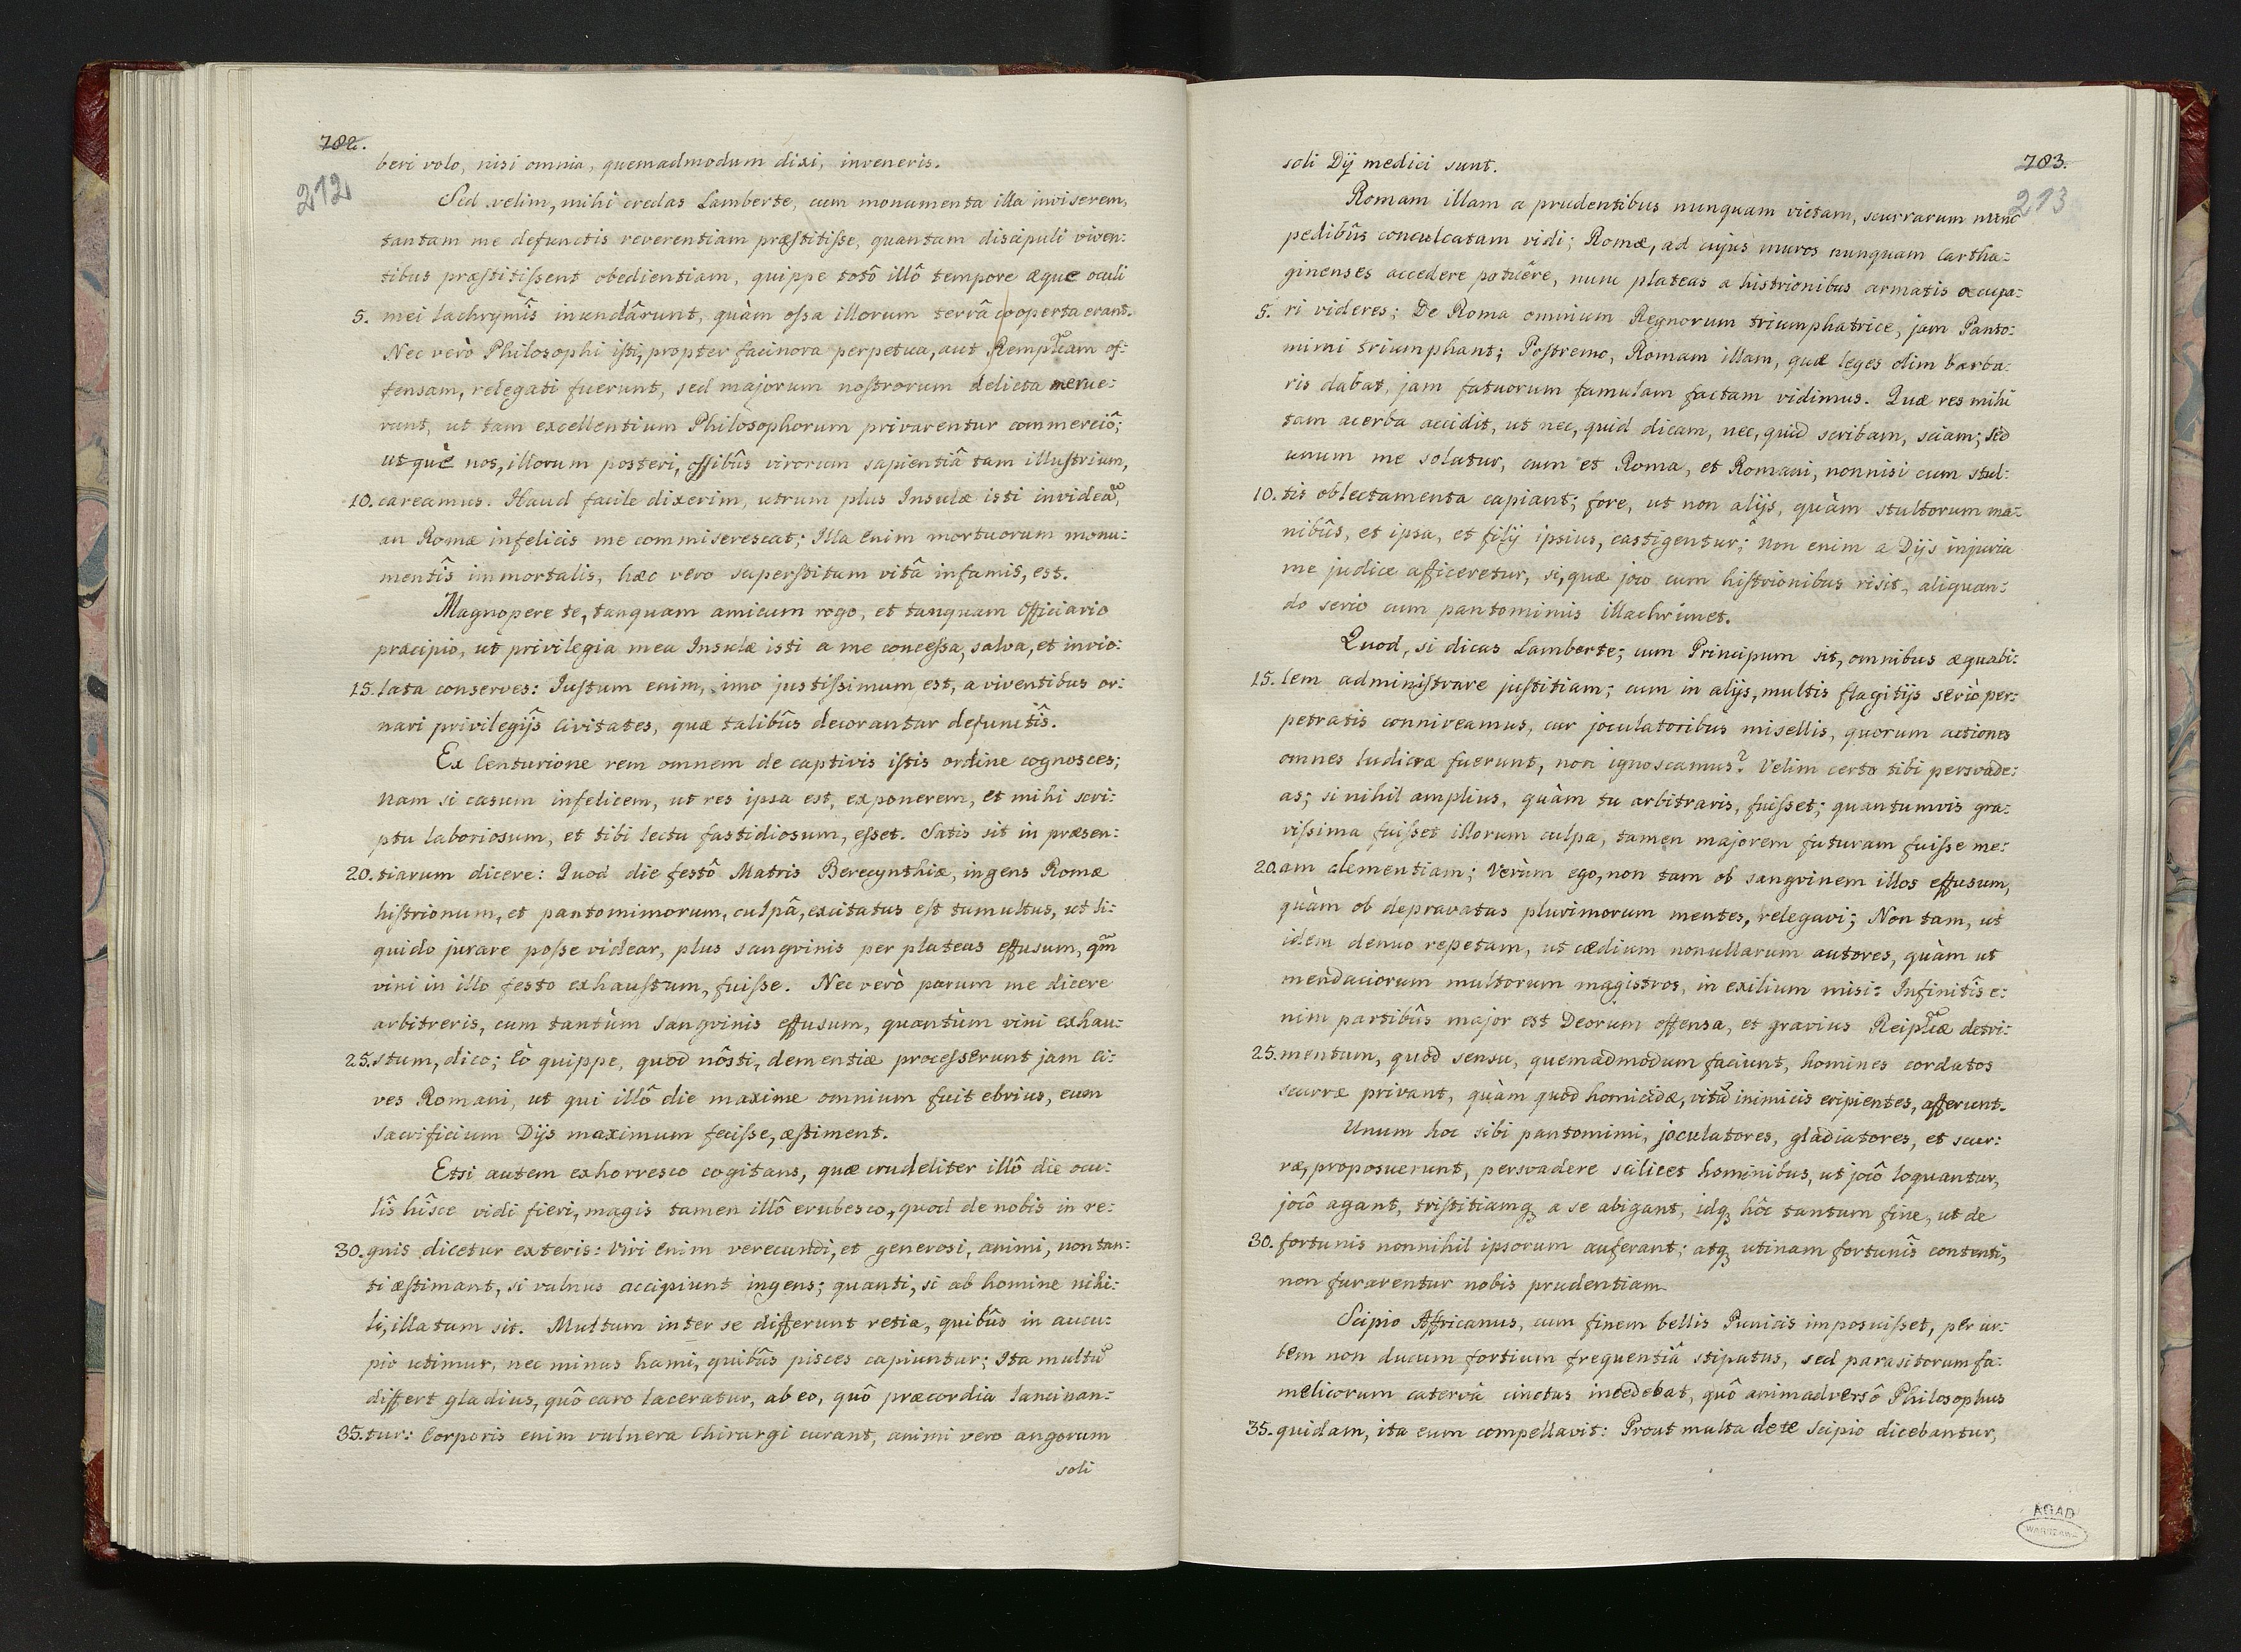 782.
212
beri volo, nisi omnia, quemadmodum dixi, inveneris.
Sed velim, mihi credas Lamberte, cum monumenta illa inviserem,
tantam me defunctis reverentiam præstitisse, quantam discipuli viven:
tibus præstitissent obedientiam, quippe totô illô tempore æque oculi
5. mei lachrymîs inundârunt, quàm ossa illorum terrâ cooperta erant.
Nec verò Philosophi isti, propter facinora perpetua, aut Rempłcam of:
fensam, relegati fuerunt, sed majorum nostrorum delicta merue:
runt, ut tam excellentium Philosophorum privarentur commerciô;
ut què nos, illorum posteri, ossibûs virorum sapientiâ tam illustrium,
10. careamus. Haud facile dixerim, utrum plus Insulæ isti invideã,
an Romæ infelicis me commiserescat; Illa enim mortuorum monu:
mentîs immortalis, hæc vero superstitum vitâ infamis, est.
Magnopere te, tanquam amicum rogo, et tanquam Officiario
præcipio, ut privilegia mea Insulæ isti a me concessa, salva, et invio:
15. lata conserves: Iustum enim, imo justissimum est, a viventibus or:
nari privilegijs Civitates, quæ talibûs decorantur defunctîs.
Ex Centurione rem omnem de captivis istis ordine cognosces;
Nam si casum infelicem, ut res ipsa est, exponerem, et mihi scri:
ptu laboriosum, et tibi lectu fastidiosum, esset. Satis sit in præsen:
20. tiarum dicere: Quod die festô Matris Berecynthiæ, ingens Romæ
histrionum, et pantomimorum, culpâ, excitatus est tumultus, ut li:
quido jurare posse videar, plus sangvinis per plateas effusum, qm̃
vini in illo festo exhaustum, fuisse. Nec verò parum me dicere
arbitreris, cum tantùm sangvinis effusum, quantùm vini exhau:
25. stum, dico; Eò quippe, quod nôsti, dementiæ processerunt jam Ci:
ves Romani, ut qui illô die maxime omnium fuit ebrius, eum
sacrificium Dijs maximum fecisse, æstiment.
Etsi autem exhorresco cogitans, quæ crudeliter illô die ocu:
lîs hîsce vidi fieri, magis tamen illô erubesco, quod de nobis in re:
30. gnis dicetur exteris: Viri enim verecundi, et generosi, animi, non tan:
ti æstimant, si vulnus accipiunt ingens; quanti, si ab homine nihi:
li, illatum sit. Multum inter se differunt retia, quibûs in aucu:
pio utimur, nec minus hami, quibûs pisces capiuntur; Ita multũ
differt gladius, quô caro laceratur, ab eo, quô præcordia lancinan:
35. tur: Corporis enim vulnera Chirurgi curant, animi vero angorum
soli
783.
213
soli Dij medici sunt.
Romam illam a prudentibus nunquam victam, scurrarum nunc
pedibûs conculcatam vidi; Romæ, ad cujus muros nunquam Cartha:
ginenses accedere potuêre, nunc plateas a histrionibus armatis occupa:
5. ri videres; De Roma omnium Regnorum triumphatrice, jam Panto:
mimi triumphant; Postremo, Romam illam, quæ leges olim barba:
ris dabat, jam fatuorum famulam factam vidimus. Quæ res mihi
tam acerba accidit, ut nec, quid dicam, nec, quid scribam, sciam; Sed
unum me solatur, cum et Roma, et Romani, nonnisi cum stul:
10. tis oblectamenta capiant; fore, ut non alijs, quàm stultorum ma:
nibûs, et ipsa, et filij ipsius, castigentur; Non enim a Dijs injuria
me judice afficeretur, si, quæ joco cum histrionibus risit, aliquan:
do serio cum pantomimis illachrimet.
Quod, si dicas Lamberte; cum Principum sit, omnibus æquabi:
15. lem administrare justitiam; cum in alijs, multis flagitijs seriò per:
petratis conniveamus, cur joculatoribus misellis, quorum actiones
omnes ludicræ fuerunt, non ignoscamus? Velim certo tibi persvade:
as; si nihil amplius, quàm tu arbitraris, fuisset; quantumvis gra:
vissima fuisset illorum culpa, tamen majorem futuram fuisse me:
20. am clementiam; Verùm ego, non tam ob sangvinem illos effusum,
quàm ob depravatas plurimorum mentes, relegavi; Non tam, ut
idem denuo repetam, ut cædium nonullarum autores, quàm ut
mendaciorum multorum magistros, in exilium misi: Infinitîs e:
nim partibûs major est Deorum offensa, et gravius Reipłcæ detri:
25. mentum, quòd sensu, quemadmodum faciunt, homines cordatos
scurræ privant, quàm quòd homicidæ, vitã inimicis eripientes, afferunt.
Unum hoc sibi pantomimi, joculatores, gladiatores, et scur:
ræ, proposuerunt, persvadere scilicet hominibus, ut jocô loquantur,
jocô agant, tristitiamq, a se abigant, idq, hôc tantum fine, ut de
30. fortunis nonnihil ipsorum auferant; atq, utinam fortunîs contenti,
non furarentur nobis prudentiam
Scipio Affricanus, cum finem bellis Punicis imposuisset, per ur:
bem non ducum fortium frequentiâ stipatus, sed parasitorum fa:
melicorum catervâ cinctus incedebat, quô animadversô Philosophus
35. quidam, ita eum compellavit: Prout multa de te Scipio dicebantur,
AGAD
WARSZAWA